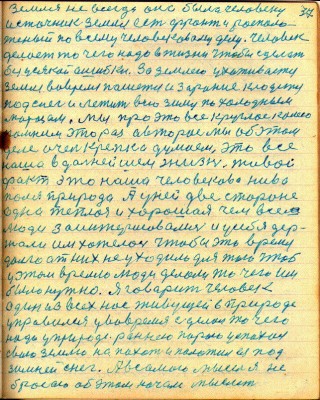 37
Земля не всегда она была человеку
источник земли ест фронт располо-
женый по всему человеческому делу. Человек
делает то чего надо в жизни чтобы сделат
ошибки. За землею ухаживает
землю вовремя пашет и заранее кладет
под снег и летит всю зиму по холодным
морозам. Мы про это все круглое
это раз а второе мы об этом
деле очен крепко думаем, это все
наша в далнейшем жизн. живой
факт это наша человекова нива
поля природа А у ней две стороне
одна теплая и хорошая чем все
люди заинтерисовалис и у себя дер-
жали им хотелос чтобы это время
долго от них не уходило для того чтоб
у этом время люди делали то чего им
было нужно. Я говорит человек
один из всех нас живущей в природе
управился у вовремя сделат то чего
надо у природе раннею парою успахал
свою землю на пахота положил ее под
зимней снег. А всамом мысля не
бросаю об этом начам мыслит